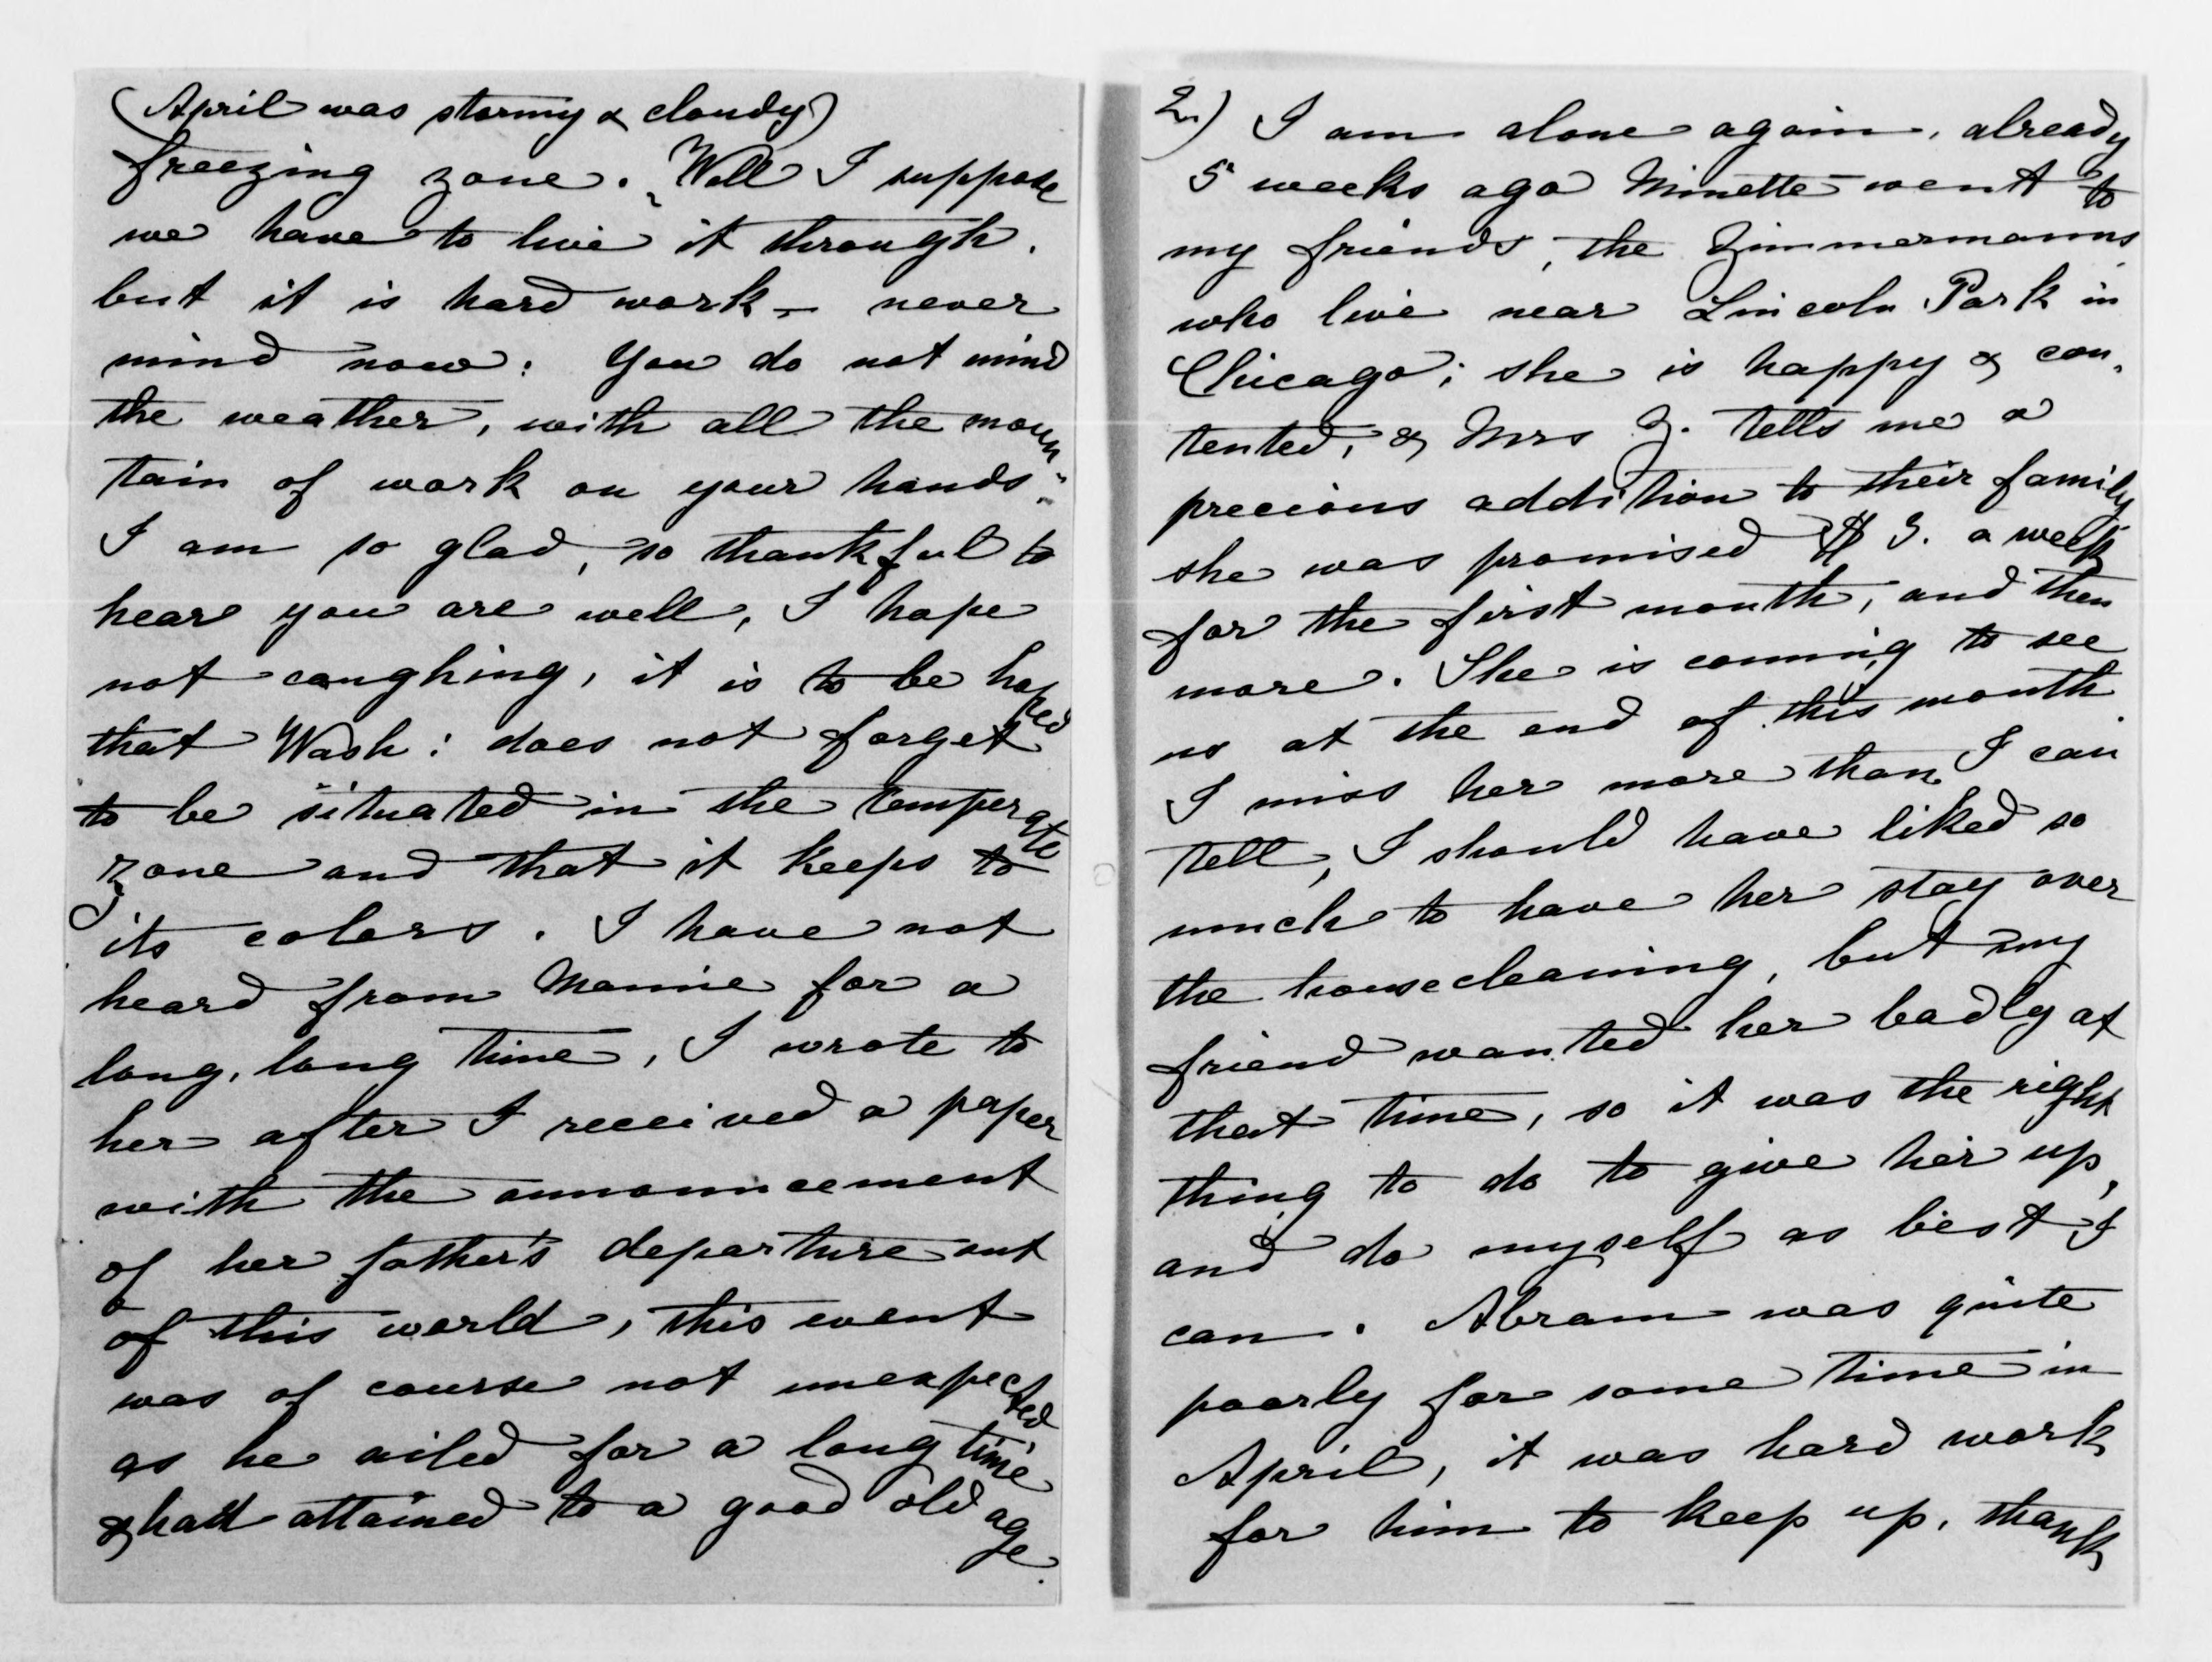 (April was stormy & cloudy)
freezing zone. Well I suppose
we have to live it through.
but it is hard work – never
mind now: you do not mind
the weather, with all the moun-
tain of work on your hands.
I am so glad, so thankful to
hear you are well, I hope
not coughing, it is to be hoped
that Wash: does not forget
to be situated in the temperate
zone and that it keeps to
its colors. I have not
heard from Mamie for a
long, long time, I wrote to
her after I received a paper
with the announcement
of her father's departure out
of this world, this event
was of course not unexpected
as he ailed for a long time
& had attained to a good old age.
2.) I am alone again, already
5 weeks ago Minette went to
my friends, the Zimmermanns
who live near Lincoln Park in
Chicago; she is happy & con-
tented, & Mrs Z. tells me a
precious addition to their family
she was promised $ 3. a week
for the first month, and then
more. She is coming to see
us at the end of this month.
I miss her more than I can
tell, I should have liked so
much to have her stay over
the housecleaning, but my
friend wanted her badly at
that time, so it was the right
thing to do to give her up,
and do myself as best I
can. Abram was quite
poorly for some time in
April, it was hard work
for him to keep up, thank